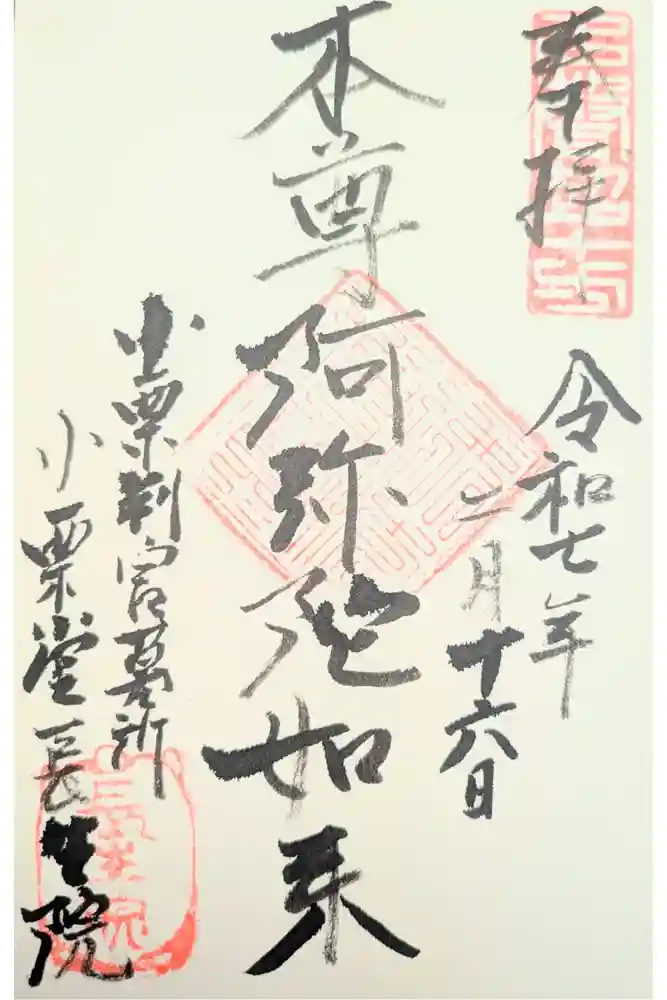 奉拝
令和七年
二月十六日
本尊阿弥陀如来
小栗判官墓所
小栗堂長生院